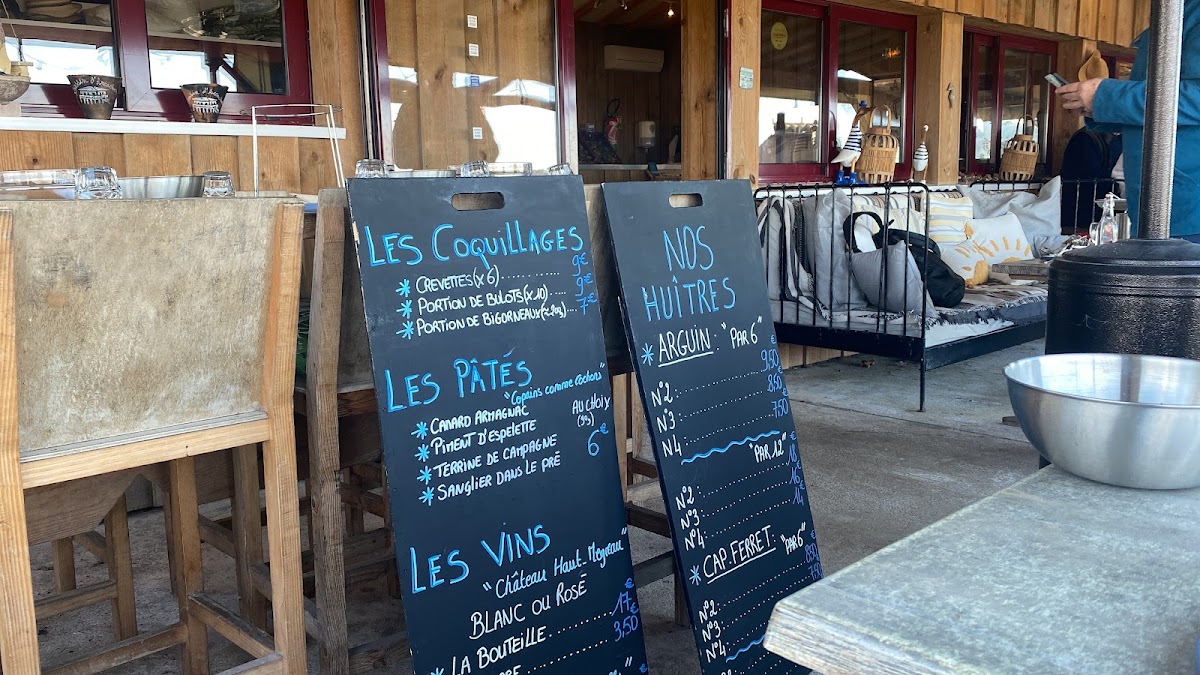 LES COQUILLAGES
* CREVETTES (x6)............ 9€
* PORTION DE BULOTS (x10)..... 9€
* PORTION DE BIGORNEAUX 7€
LES PÂTÉS
"Copains comme cochons"
* CANARD ARMAGNAC
* PIMENT D'ESPELETTE
* TERRINE DE CAMPAGNE
* SANGLIER DANS LE PRÉ
AU CHOIX
6€
LES VINS
"Château Haut-Meyneau"
BLANC OU ROSÉ
* LA BOUTEILLE............ 17€
3,50
NOS
HUÎTRES
* ARGUIN: "PAR 6"
N°2............ 9,50€
N°3............ 8,50
N°4............ 7,50
"PAR 12"
N°2............ 18€
N°3............ 16€
N°4............ 14€
* CAP-FERRET: "PAR 6"
N°2............ 8,50
N°3............ 7,50
N°4